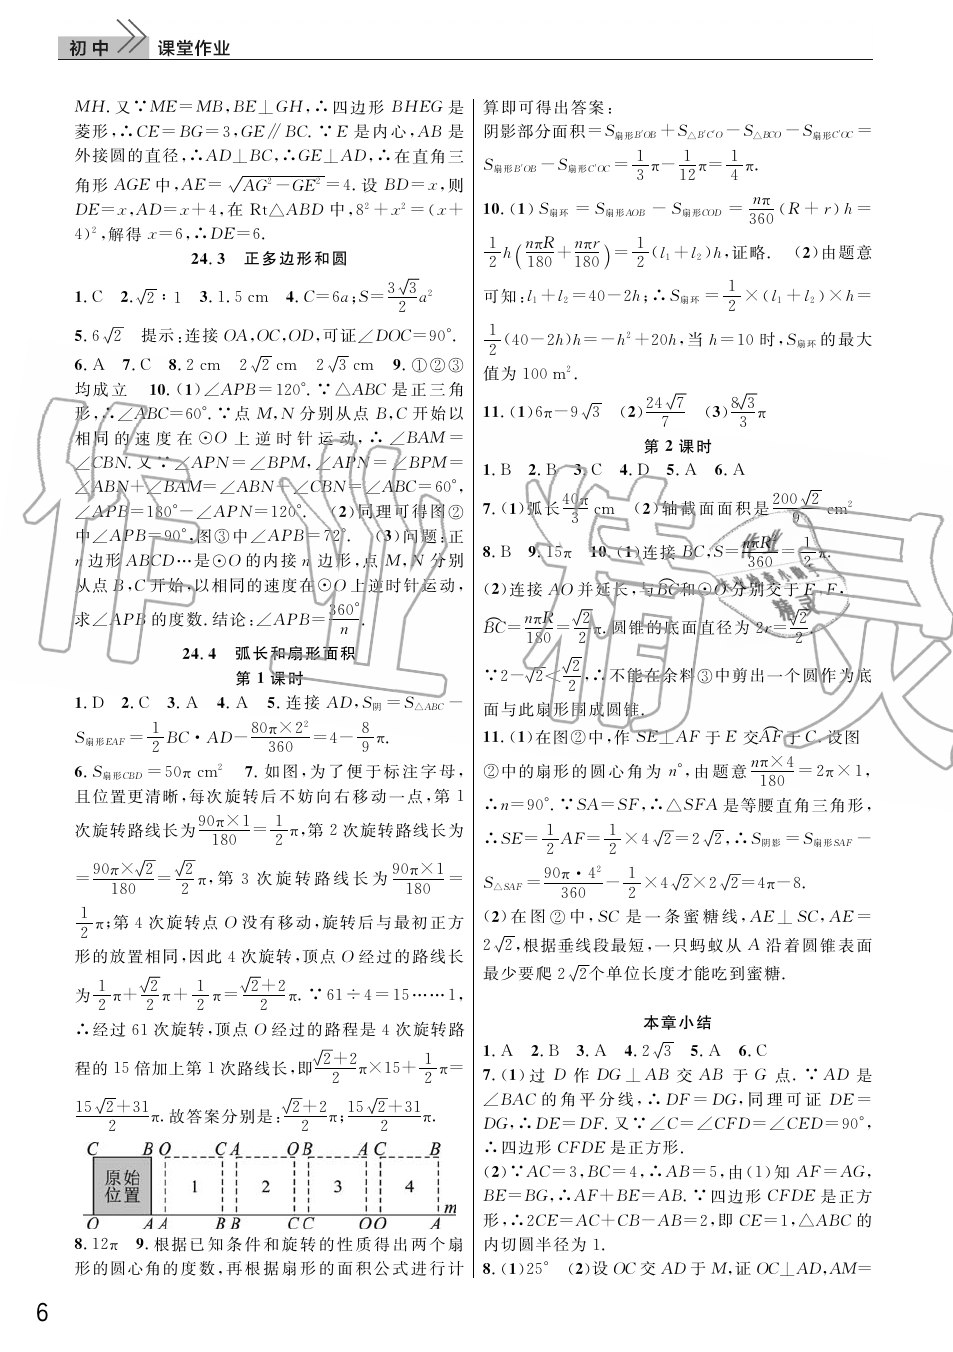 初中 课堂作业
MH. 又∵ME=MB,BE⊥GH,∴四边形 BHEG 是
菱形,∴CE=BG=3,GE∥BC. ∵E 是内心,AB 是
外接圆的直径,∴AD⊥BC,∴GE⊥AD,∴在直角三
角形 AGE 中,AE=√(AG²-GE²)=4. 设 BD=x,则
DE=x,AD=x+4,在 Rt△ABD 中,8²+x²=(x+
4)²,解得 x=6,∴DE=6.
24.3 正多边形和圆
1. C 2. √2∶1 3. 1.5 cm 4. C=6a;S=(3√3/2)a²
5. 6√2 提示:连接 OA,OC,OD,可证∠DOC=90°.
6. A 7. C 8. 2 cm 2√2 cm 2√3 cm 9. ①②③
均成立 10. (1)∠APB=120°. ∵△ABC 是正三角
形,∴∠ABC=60°. ∵点 M,N 分别从点 B,C 开始以
相同的速度在⊙O 上逆时针运动,∴∠BAM=
∠CBN. 又∵∠APN=∠BPM,∠APN=∠BPM=
∠ABN+∠BAM=∠ABN+∠CBN=∠ABC=60°,
∠APB=180°-∠APN=120°. (2)同理可得图②
中∠APB=90°,图③中∠APB=72°. (3)问题:正
n 边形 ABCD…是⊙O 的内接 n 边形,点 M,N 分别
从点 B,C 开始,以相同的速度在⊙O 上逆时针运动,
求∠APB 的度数. 结论:∠APB=360°/n.
24.4 弧长和扇形面积
第 1 课时
1. D 2. C 3. A 4. A 5. 连接 AD,S阴=S△ABC-
S扇形EAF=1/2 BC·AD-(80π×2²)/360=4-8/9 π.
6. S扇形CBD=50π cm² 7. 如图,为了便于标注字母,
且位置更清晰,每次旋转后不妨向右移动一点,第 1
次旋转路线长为(90π×1)/180=1/2 π,第 2 次旋转路线长为
=(90π×√2)/180=√2/2 π,第 3 次旋转路线长为(90π×1)/180=
1/2 π;第 4 次旋转点 O 没有移动,旋转后与最初正方
形的放置相同,因此 4 次旋转,顶点 O 经过的路线长
为1/2 π+√2/2 π+1/2 π=(√2+2)/2 π. ∵61÷4=15……1,
∴经过 61 次旋转,顶点 O 经过的路程是 4 次旋转路
程的 15 倍加上第 1 次路线长,即(√2+2)/2 π×15+1/2 π=
(15√2+31)/2 π. 故答案分别是:(√2+2)/2 π;(15√2+31)/2 π.
C B O C A O B A C B
原始
位置 1 2 3 4 m
O A A B B C C O O A
8. 12π 9. 根据已知条件和旋转的性质得出两个扇
形的圆心角的度数,再根据扇形的面积公式进行计
算即可得出答案:
阴影部分面积=S扇形B′OB+S△B′C′O-S△BCO-S扇形C′OC=
S扇形B′OB-S扇形C′OC=1/3 π-1/12 π=1/4 π.
10. (1) S扇环=S扇形AOB-S扇形COD=nπ/360 (R+r)h=
1/2 h(nπR/180+nπr/180)=1/2 (l₁+l₂)h,证略. (2)由题意
可知:l₁+l₂=40-2h;∴S扇环=1/2×(l₁+l₂)×h=
1/2 (40-2h)h=-h²+20h,当 h=10 时,S扇环的最大
值为 100 m².
11. (1)6π-9√3 (2)24√7/7 (3)8√3/3 π
第 2 课时
1. B 2. B 3. C 4. D 5. A 6. A
7. (1)弧长40π/3 cm (2)轴截面面积是200√2/9 cm²
8. B 9. 15π 10. (1)连接 BC,S=nπR²/360=1/2 π.
(2)连接 AO 并延长,与B͡C和⊙O 分别交于 E,F,
B͡C=nπR/180=√2/2 π. 圆锥的底面直径为 2r=√2/2.
∵2-√2<√2/2,∴不能在余料③中剪出一个圆作为底
面与此扇形围成圆锥.
11. (1)在图②中,作 SE⊥AF 于 E 交A͡F于 C. 设图
②中的扇形的圆心角为 n°,由题意(nπ×4)/180=2π×1,
∴n=90°. ∵SA=SF,∴△SFA 是等腰直角三角形,
∴SE=1/2 AF=1/2×4√2=2√2,∴S阴影=S扇形SAF-
S△SAF=(90π·4²)/360-1/2×4√2×2√2=4π-8.
(2)在图②中,SC 是一条蜜糖线,AE⊥SC,AE=
2√2,根据垂线段最短,一只蚂蚁从 A 沿着圆锥表面
最少要爬 2√2个单位长度才能吃到蜜糖.
本章小结
1. A 2. B 3. A 4. 2√3 5. A 6. C
7. (1)过 D 作 DG⊥AB 交 AB 于 G 点. ∵AD 是
∠BAC 的角平分线,∴DF=DG,同理可证 DE=
DG,∴DE=DF. 又∵∠C=∠CFD=∠CED=90°,
∴四边形 CFDE 是正方形.
(2)∵AC=3,BC=4,∴AB=5,由(1)知 AF=AG,
BE=BG,∴AF+BE=AB. ∵四边形 CFDE 是正方
形,∴2CE=AC+CB-AB=2,即 CE=1,△ABC 的
内切圆半径为 1.
8. (1)25° (2)设 OC 交 AD 于 M,证 OC⊥AD,AM=
6
作业精灵